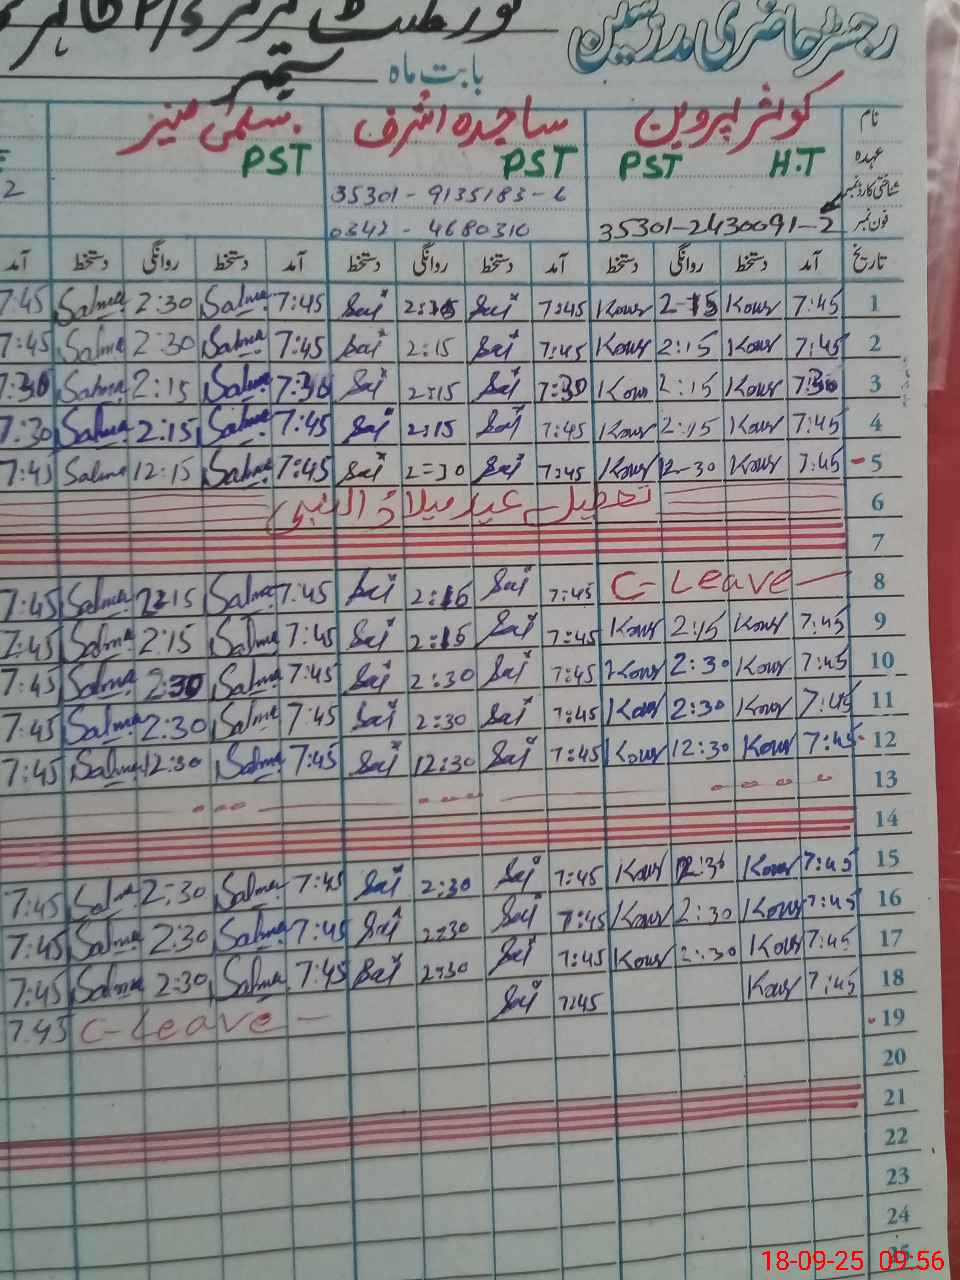 رجسٹر حاضری مدرسین
بابت ماہ ستمبر
نام کوثر پروین ساجدہ اشرف سلمیٰ منیر
عہدہ H.T PST PST PST
شناختی کارڈ نمبر 35301-9135183-6 2
فون نمبر 35301-2430091-2 0342-4680310
تاریخ آمد دستخط روانگی دستخط آمد دستخط روانگی دستخط آمد دستخط روانگی دستخط آمد
1 7:45 Kous 2-15 Kous 7:45 Saj 2:15 Saj 7:45 Salma 2:30 Salma 7:45
2 7:45 Kous 2:15 Kous 7:45 Saj 2:15 Saj 7:45 Salma 2:30 Salma 7:45
3 7:30 Kous 2:15 Kous 7:30 Saj 2:15 Saj 7:30 Salma 2:15 Salma 7:30
4 7:45 Kous 2:15 Kous 7:45 Saj 2:15 Saj 7:45 Salma 2:15 Salma 7:30
5 7:45 Kous 12-30 Kous 7:45 Saj 2=30 Saj 7:45 Salma 12:15 Salma 7:45
6 تعطیل عید میلاد النبی
7
8 C-Leave 7:45 Saj 2:15 Saj 7:45 Salma 2:15 Salma 7:45
9 7:45 Kous 2:15 Kous 7:45 Saj 2:15 Saj 7:45 Salma 2:15 Salma 7:45
10 7:45 Kous 2:30 Kous 7:45 Saj 2:30 Saj 7:45 Salma 2:30 Salma 7:45
11 7:45 Kous 2:30 Kous 7:45 Saj 2:30 Saj 7:45 Salma 2:30 Salma 7:45
12 7:45 Kous 12:30 Kous 7:45 Saj 12:30 Saj 7:45 Salma 12:30 Salma 7:45
13
14
15 7:45 Kous 2:30 Kous 7:45 Saj 2:30 Saj 7:45 Salma 2:30 Salma 7:45
16 7:45 Kous 2:30 Kous 7:45 Saj 2:30 Saj 7:45 Salma 2:30 Salma 7:45
17 7:45 Kous 2:30 Kous 7:45 Saj 2:30 Saj 7:45 Salma 2:30 Salma 7:45
18 7:45 Kous 7:45 Saj C-Leave 7:45
19
20
21
22
23
24
25
18-09-25 09:56